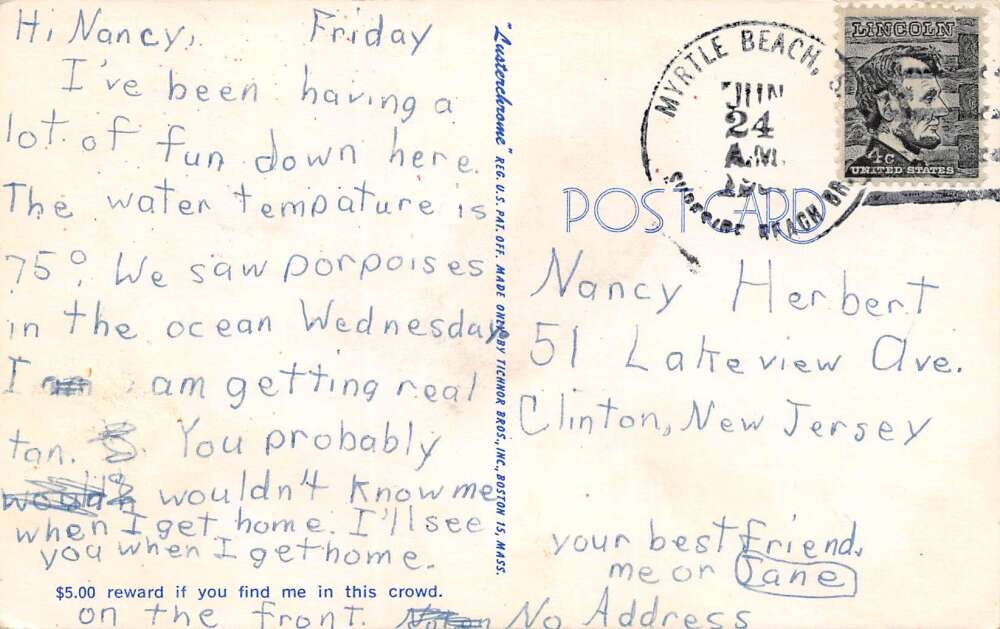 Hi Nancy, Friday
I've been having a
lot of fun down here.
The water tempature is
75°. We saw porpoises
in the ocean Wednesday
I am getting real
tan. You probably
wouldn't know me
when I get home. I'll see
you when I get home.
$5.00 reward if you find me in this crowd.
on the front. No Address
"Lusterchrome" REG. U.S. PAT. OFF. MADE ONLY BY TICHNOR BROS., INC., BOSTON 15, MASS.
MYRTLE BEACH,
JUN
24
A.M.
BEACH BR.
LINCOLN
4¢
UNITED STATES
POST CARD
Nancy Herbert
51 Lakeview Ave.
Clinton, New Jersey
your best friend.
me or Jane